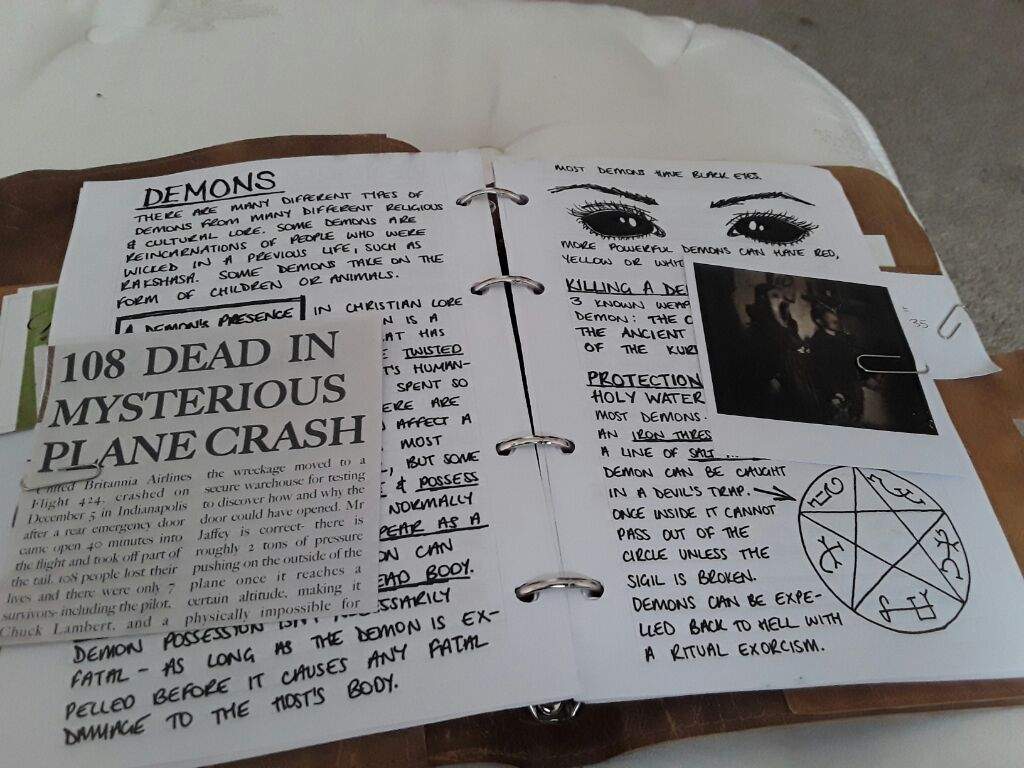 DEMONS
THERE ARE MANY DIFFERENT TYPES OF
DEMONS FROM MANY DIFFERENT RELIGIOUS
& CULTURAL LORE. SOME DEMONS ARE
REINCARNATIONS OF PEOPLE WHO WERE
WICKED IN A PREVIOUS LIFE, SUCH AS
RAKSHASA. SOME DEMONS TAKE ON THE
FORM OF CHILDREN OR ANIMALS.
A DEMON'S PRESENCE IN CHRISTIAN LORE
IS A
HAS
TWISTED
HUMAN-
SPENT SO
ARE
AFFECT A
MOST
, BUT SOME
& POSSESS
NORMALLY
AS A
CAN
BODY.
DEMON POSSESSION ISN'T
FATAL - AS LONG AS THE DEMON IS EX-
PELLED BEFORE IT CAUSES ANY FATAL
DAMAGE TO THE HOST'S BODY.
108 DEAD IN
MYSTERIOUS
PLANE CRASH
United Britannia Airlines
Flight 424, crashed on
December 5 in Indianapolis
after a rear emergency door
came open 40 minutes into
the flight and took off part of
the tail. 108 people lost their
lives and there were only 7
survivors- including the pilot,
Chuck Lambert, and a
the wreckage moved to a
secure warehouse for testing
to discover how and why the
door could have opened. Mr
Jaffey is correct- there is
roughly 2 tons of pressure
pushing on the outside of the
plane once it reaches a
certain altitude, making it
physically impossible for
MOST DEMONS HAVE BLACK EYES.
MORE POWERFUL DEMONS CAN HAVE RED,
YELLOW OR
KILLING A
3 KNOWN
DEMON: THE
THE ANCIENT
OF THE
PROTECTION
HOLY WATER
MOST DEMONS.
AN IRON
A LINE OF SALT ...
DEMON CAN BE CAUGHT
IN A DEVIL'S TRAP.
ONCE INSIDE IT CANNOT
PASS OUT OF THE
CIRCLE UNLESS THE
SIGIL IS BROKEN.
DEMONS CAN BE EXPE-
LLED BACK TO HELL WITH
A RITUAL EXORCISM.
35